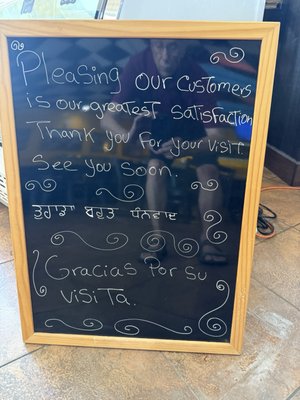 Pleasing our customers
is our greatest satisfaction
Thank you for your visit.
See you soon.
ਤੁਹਾਡਾ ਬਹੁਤ ਧੰਨਵਾਦ
Gracias Por su
visita.